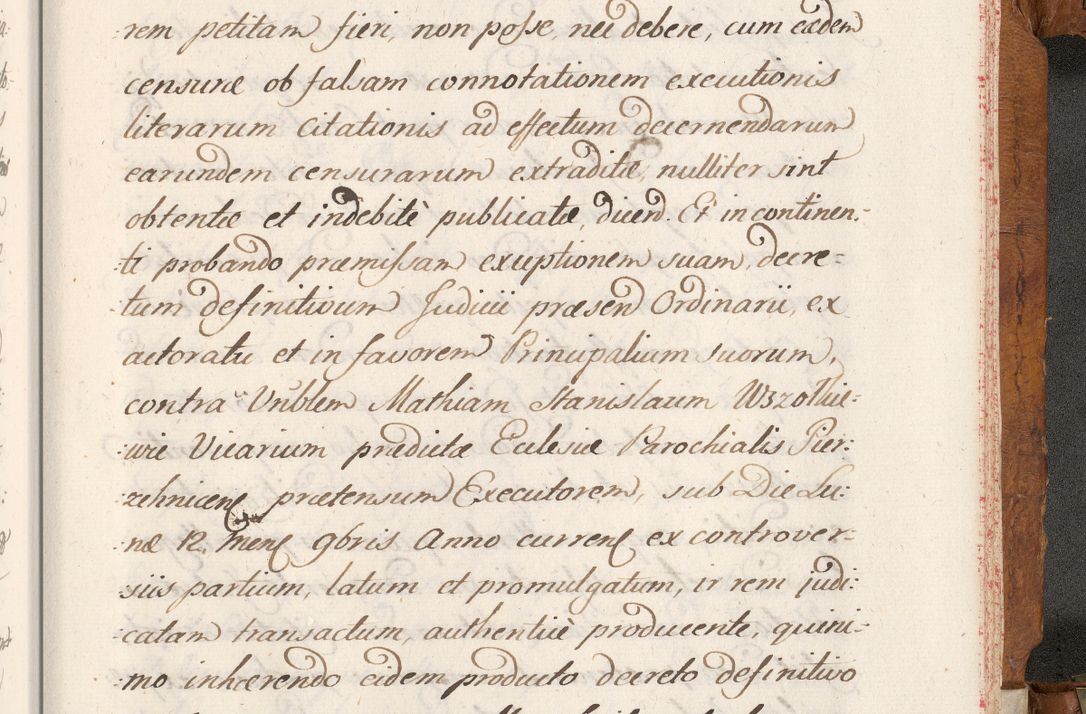 rem petitam fieri, non posse, nec debere, cum eædem
censuræ ob falsam connotationem executionis
literarum Citationis ad effectum decernendarum
earundem censurarum extraditæ, nulliter sint
obtentæ et indebitè publicatæ, dicend. Et in continen-
ti probando præmissam exceptionem suam, decre=
tum definitivum Judicii præsen Ordinarii, ex
actoratu et in favorem Principalium suorum,
contra Vnblem Mathiam Stanislaum Wszolkie=
wic Vicarium prædictæ Ecclesiæ Parochialis Pier:
zchnicen prætensum Executorem, sub Die Lu:
næ 12. Mens 9bris Anno curren ex controver-
siis partium, latum et promulgatum, ir rem judi:
catam transactum, authenticè producente, quini-
mo inhærendo eidem producto decreto definitivo